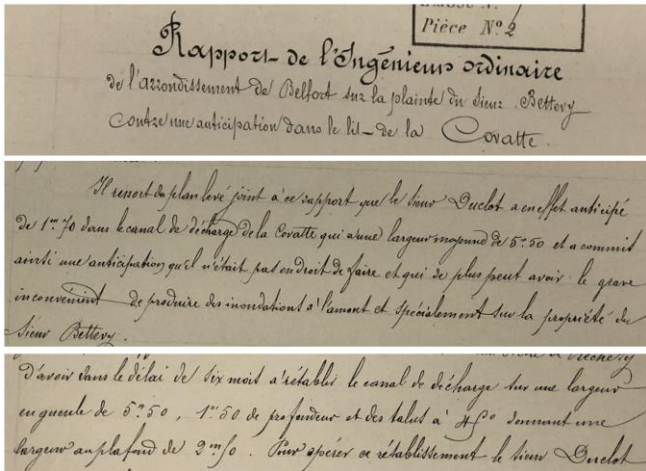 Pièce N° 2
Rapport de l'Ingénieur ordinaire
de l'arrondissement de Belfort sur la plainte du Sieur Bettevy
contre une anticipation dans le lit de la Covatte.
Il ressort du plan levé joint à ce rapport que le Sieur Duclot a en effet anticipé
de 1m70 dans le canal de décharge de la Covatte qui a une largeur moyenne de 5m50 et a commis
ainsi une anticipation qu'il n'était pas en droit de faire et qui de plus peut avoir le grave
inconvénient de produire des inondations à l'amont et spécialement sur la propriété du
Sieur Bettevy.
d'avoir dans le délai de six mois à rétablir le canal de décharge sur une largeur
en gueule de 5m50, 1m50 de profondeur et des talus à 45° donnant une
largeur au plafond de 2m50. Pour opérer ce rétablissement le Sieur Duclot